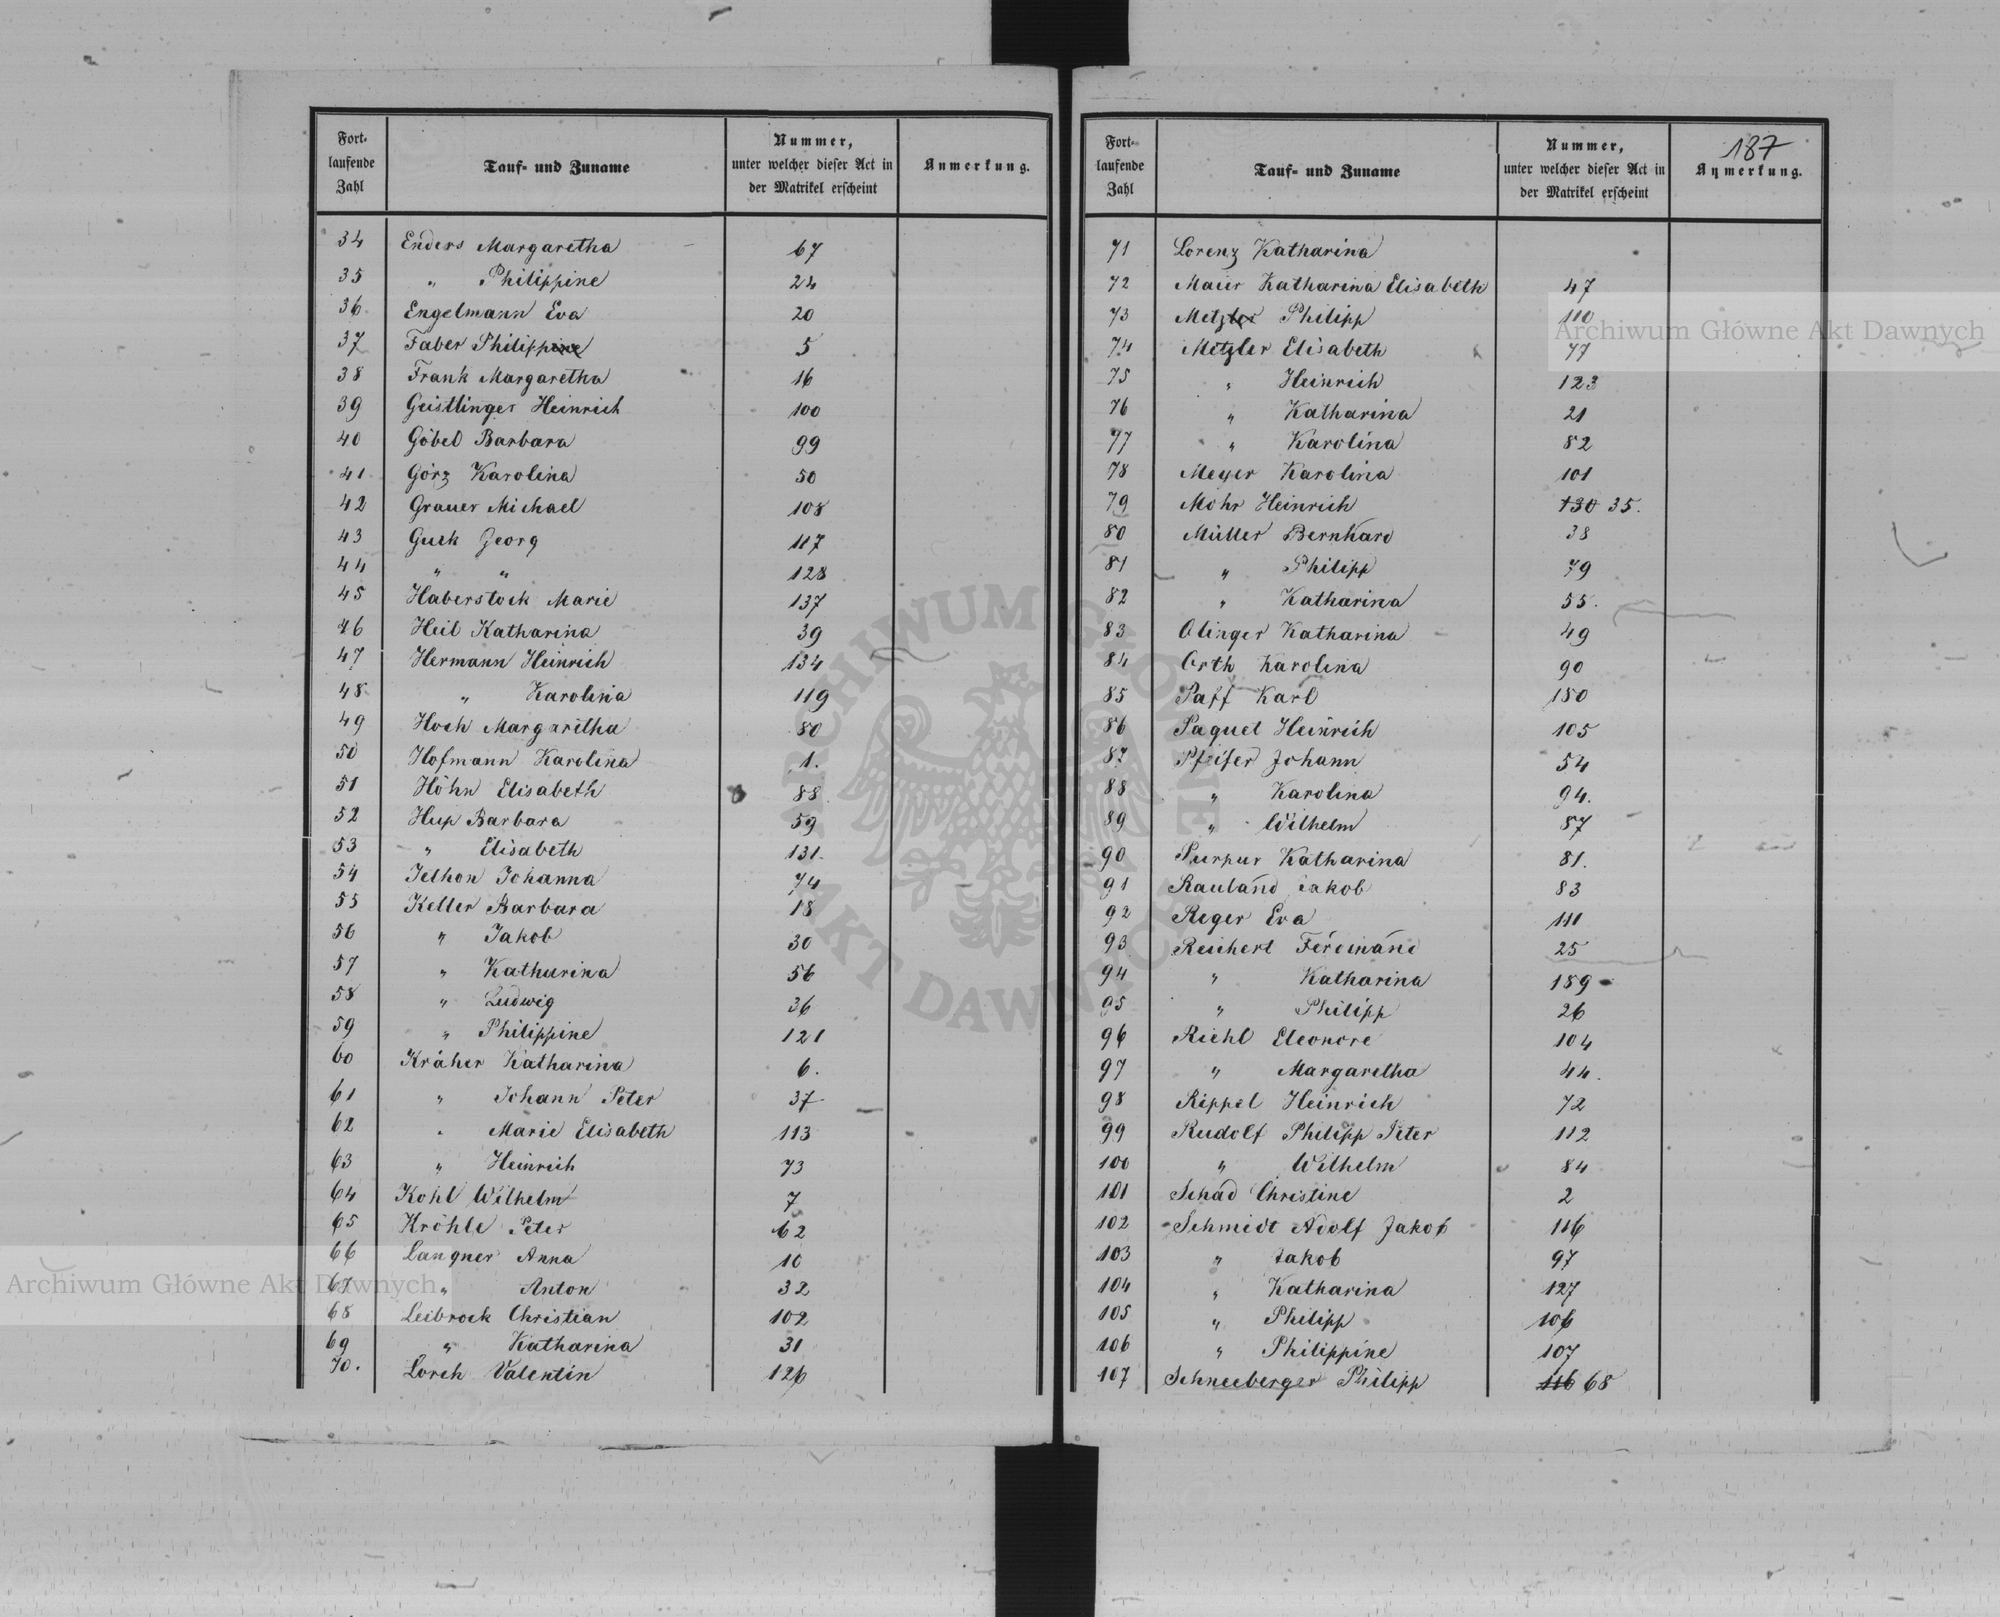 187
Fort-
laufende
Zahl
Tauf- und Zuname
Nummer,
unter welcher dieser Act in
der Matrikel erscheint
Anmerkung.
34 Enders Margaretha 67
35 " Philippine 24
36 Engelmann Eva 20
37 Faber Philippine 5
38 Frank Margaretha 16
39 Geistlinger Heinrich 100
40 Göbel Barbara 99
41 Görz Karolina 50
42 Grauer Michael 108
43 Guck Georg 117
44 " " 128
45 Haberstock Marie 137
46 Heil Katharina 39
47 Hermann Heinrich 134
48 " Karolina 119
49 Hoch Margaritha 80
50 Hofmann Karolina 1.
51 Höhn Elisabeth 88
52 Hup Barbara 59
53 " Elisabeth 131.
54 Jelhon Johanna 74
55 Keller Barbara 18
56 " Jakob 30
57 " Katharina 56
58 " Ludwig 36
59 " Philippine 121
60 Kräher Katharina 6.
61 " Johann Peter 37
62 " Marie Elisabeth 113
63 " Heinrich 73
64 Kohl Wilhelm 7
65 Kröhle Peter 62
66 Langner Anna 10
67 " Anton 32
68 Leibrock Christian 102
69 " Katharina 31
70. Lorch Valentin 126
Fort-
laufende
Zahl
Tauf- und Zuname
Nummer,
unter welcher dieser Act in
der Matrikel erscheint
Anmerkung.
71 Lorenz Katharina
72 Maier Katharina Elisabeth 47
73 Metzler Philipp 110
74 Metzler Elisabeth 77
75 " Heinrich 123
76 " Katharina 21
77 " Karolina 82
78 Meyer Karolina 101
79 Mohr Heinrich 130 35.
80 Müller Bernhard 38
81 " Philipp 79
82 " Katharina 55.
83 Olinger Katharina 49
84 Orth Karolina 90
85 Paff Karl 150
86 Paquet Heinrich 105
87 Pfeifer Johann 54
88 " Karolina 94.
89 " Wilhelm 87
90 Purpur Katharina 81.
91 Rauland Jakob 83
92 Reger Eva 111
93 Reichert Ferdinand 25
94 " Katharina 189
95 " Philipp 26
96 Riehl Eleonore 104
97 " Margaretha 44.
98 Rippel Heinrich 72
99 Rudolf Philipp Peter 112
100 " Wilhelm 84
101 Schad Christine 2
102 Schmidt Adolf Jakob 116
103 " Jakob 97
104 " Katharina 127
105 " Philipp 106
106 " Philippine 107
107 Schneeberger Philipp 116 68
Archiwum Główne Akt Dawnych
Archiwum Główne Akt Dawnych
ARCHIWUM GŁÓWNE
AKT DAWNYCH